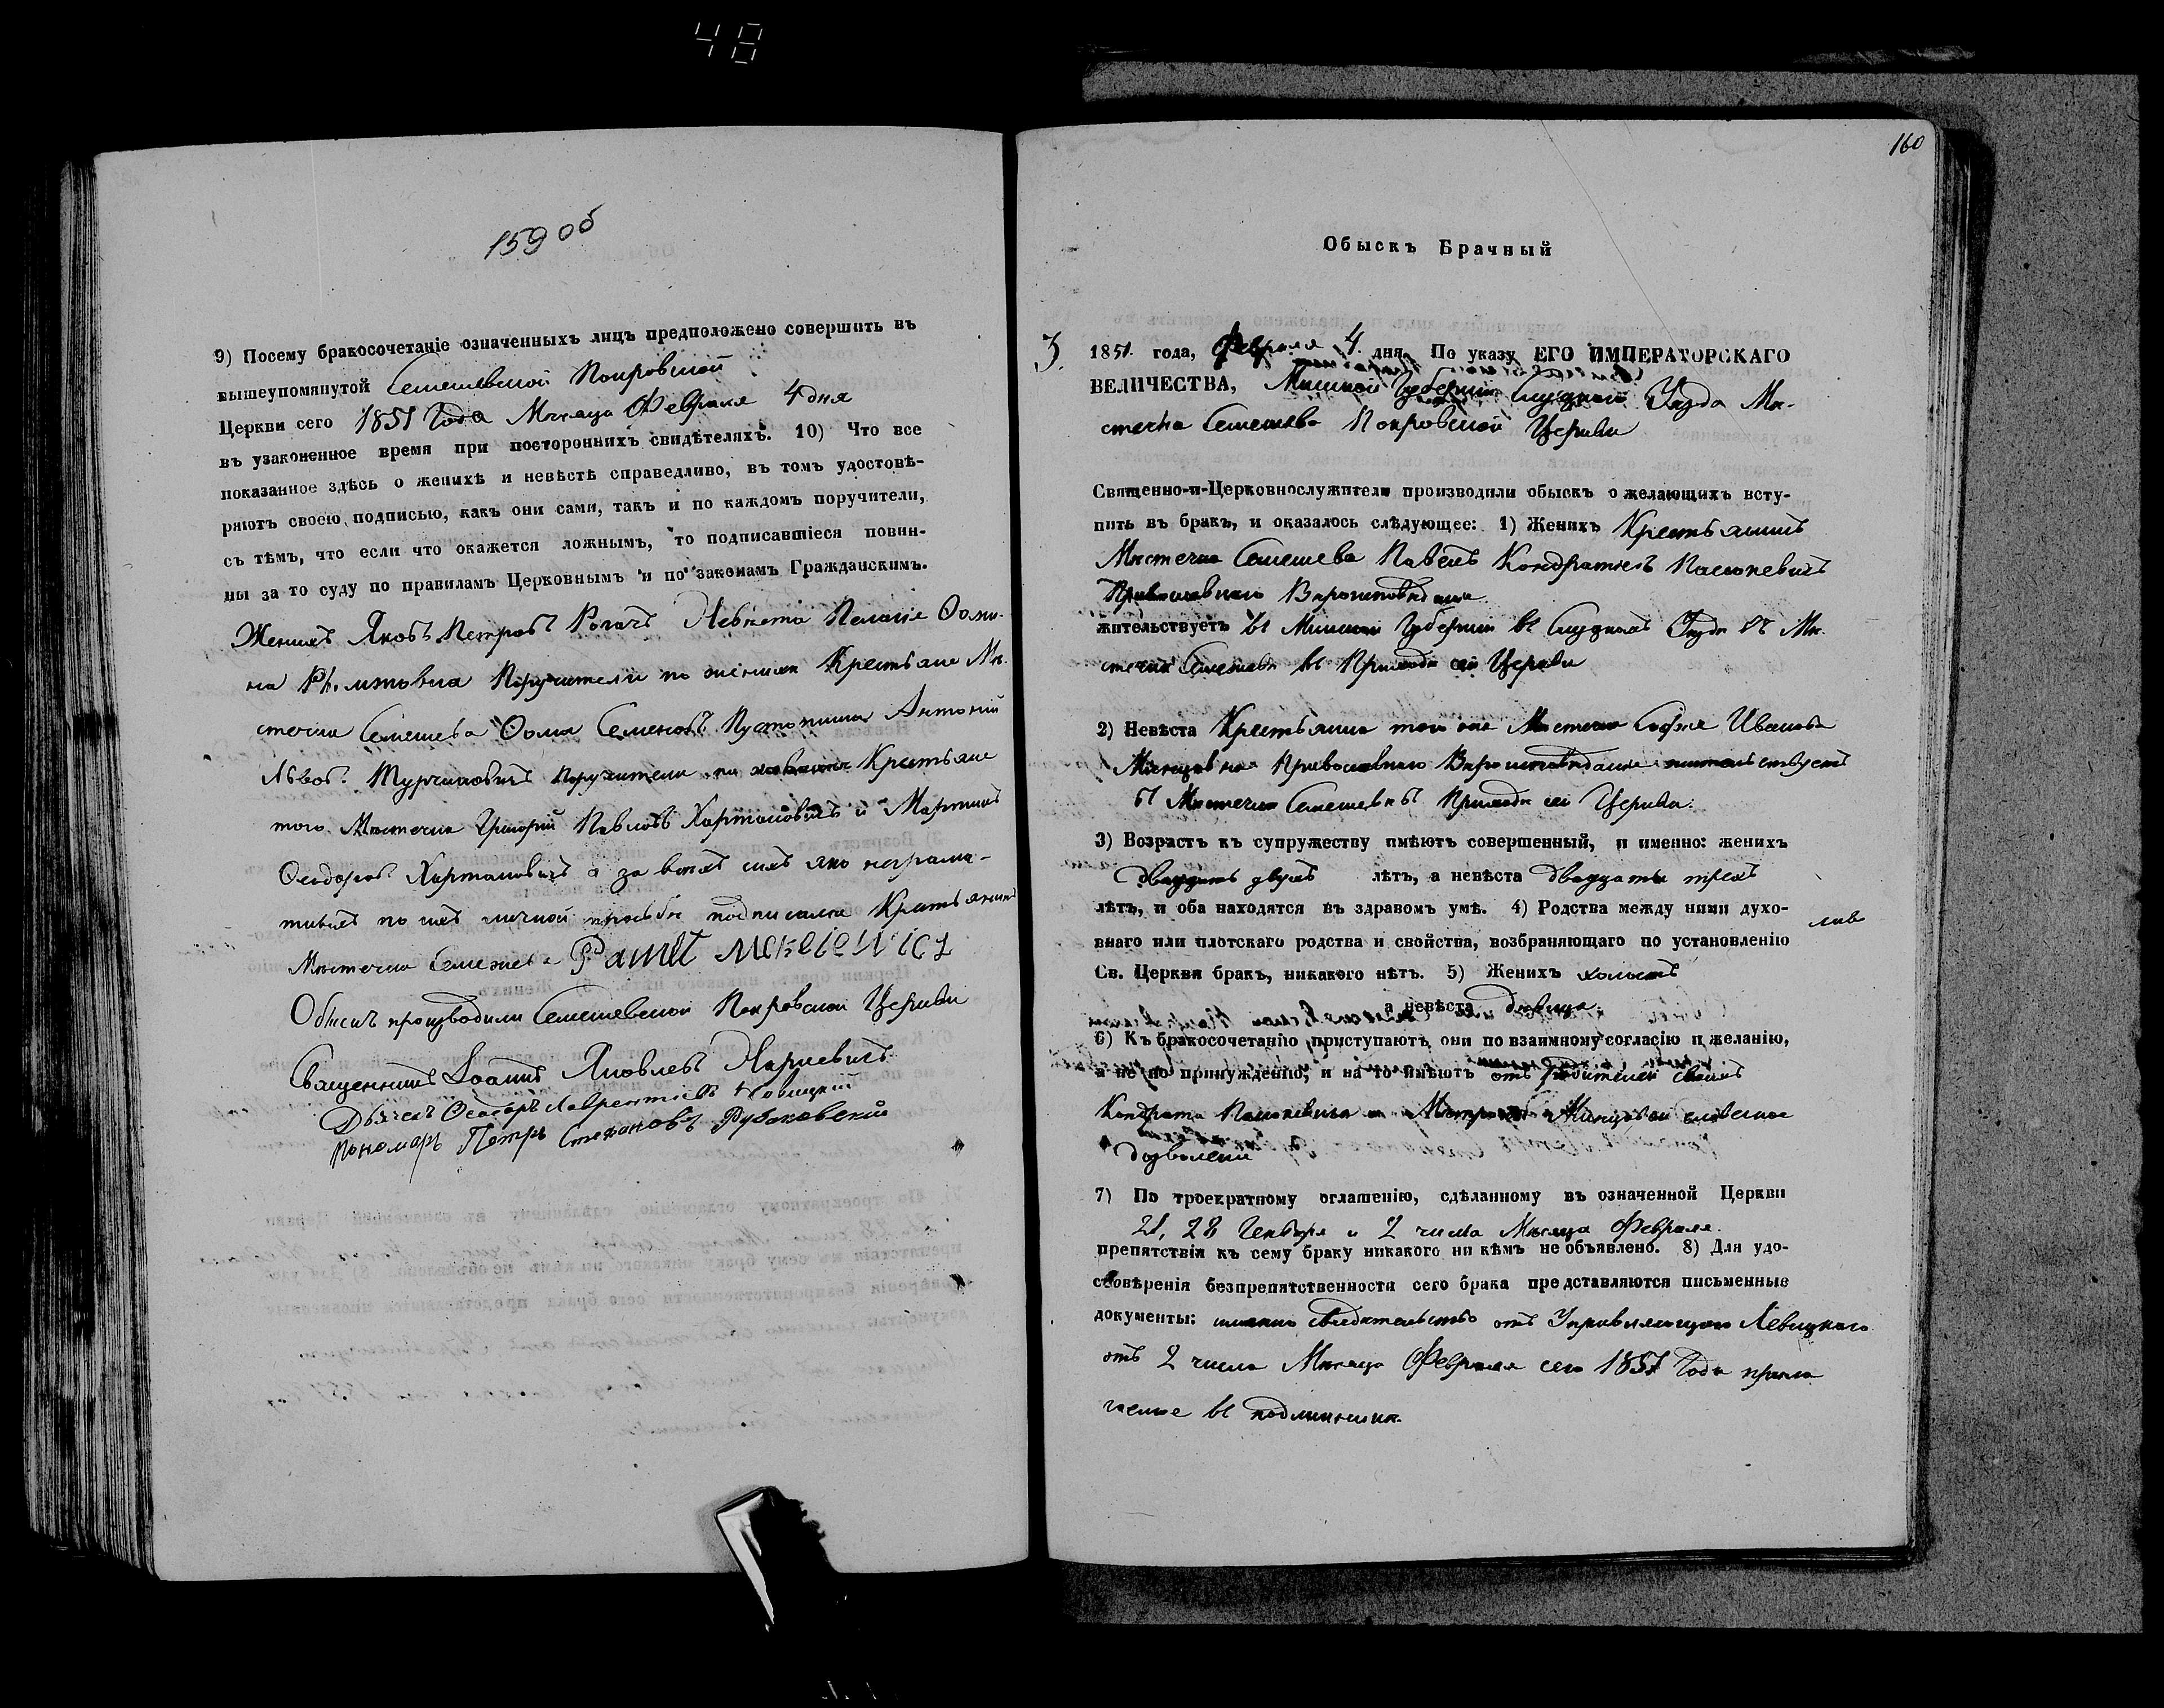 48
159 об
9) Посему бракосочетаніе означенныхъ лицъ предположено совершить въ
вышеупомянутой Семежевской Покровской
Церкви сего 1851 Года Мѣсяца Февраля 4 дня
въ узаконенное время при постороннихъ свидѣтеляхъ. 10) Что все
показанное здѣсь о женихѣ и невѣстѣ справедливо, въ томъ удостовѣ-
ряютъ своею подписью, какъ они сами, такъ и по каждомъ поручители,
съ тѣмъ, что если что окажется ложнымъ, то подписавшіеся повин-
ны за то суду по правиламъ Церковнымъ и по законамъ Гражданскимъ.
Женихъ Яковъ Петровъ Рогачъ Невѣста Пелагіе Ѳоми-
на Поручители по женихѣ Крестьяне Мѣ-
стечка Семежева Ѳома Семеновъ Антоній
Львовъ Турчиновичъ поручители по невѣстѣ Крестьяне
того Мѣстечка Григорій Павловъ Хартановичъ и Мартинъ
Ѳеодоровъ Хартановичъ а за всѣхъ ихъ яко неграмо-
тныхъ по ихъ личной просьбѣ подписался Крестьянинъ
Мѣстечка Семежева
Обыскъ производили Семежевской Покровской Церкви
Священникъ Іоаннъ Яковлевъ
Дьячекъ Ѳеодоръ Лаврентіевъ
Пономарь Петръ Стефановъ
160
Обыскъ Брачный
3. 1851 года, Февраля 4 дня. По указу ЕГО ИМПЕРАТОРСКАГО
ВЕЛИЧЕСТВА, Минской Губерніи Слуцкаго Уѣзда Мѣ-
стечка Семежева Покровской Церкви
Священно-и-Церковнослужители производили обыскъ о желающихъ всту-
пить въ бракъ, и оказалось слѣдующее: 1) Женихъ Крестьянинъ
Мѣстечка Семежева Павелъ Кондратіевъ
Православнаго Вѣроисповѣданія
жительствуетъ въ Минской Губерніи въ Слуцкомъ Уѣздѣ въ Мѣ-
стечкѣ Семежевѣ въ Приходѣ сей Церкви
2) Невѣста Крестьянка того же Мѣстечка Софіе Иванова
Православнаго Вѣроисповѣданія жительствуетъ
въ Мѣстечкѣ Семежевѣ въ Приходѣ сей Церкви.
3) Возрастъ къ супружеству имѣютъ совершенный, и именно: женихъ
двадцать двухъ лѣтъ, а невѣста двадцать трехъ
лѣтъ, и оба находятся въ здравомъ умѣ. 4) Родства между ними духо-
внаго или плотскаго родства и свойства, возбраняющаго по установленію
Св. Церкви бракъ, никакого нѣтъ. 5) Женихъ холостъ
а невѣста дѣвица.
6) Къ бракосочетанію приступаютъ они по взаимному согласію и желанію,
а не по принужденію, и на то имѣютъ отъ родителей своихъ
Кондрата словесное
дозволеніе
7) По троекратному оглашенію, сдѣланному въ означенной Церкви
21, 28 Генваря и 2 числа Мѣсяца Февраля.
препятствія къ сему браку никакого ни кѣмъ не объявлено. 8) Для удо-
стовѣренія безпрепятственности сего брака представляются письменные
документы: именно свидѣтельство отъ Управляющаго Левицкаго
отъ 2 числа Мѣсяца Февраля сего 1851 Года прила-
гаемое въ подлинникѣ.